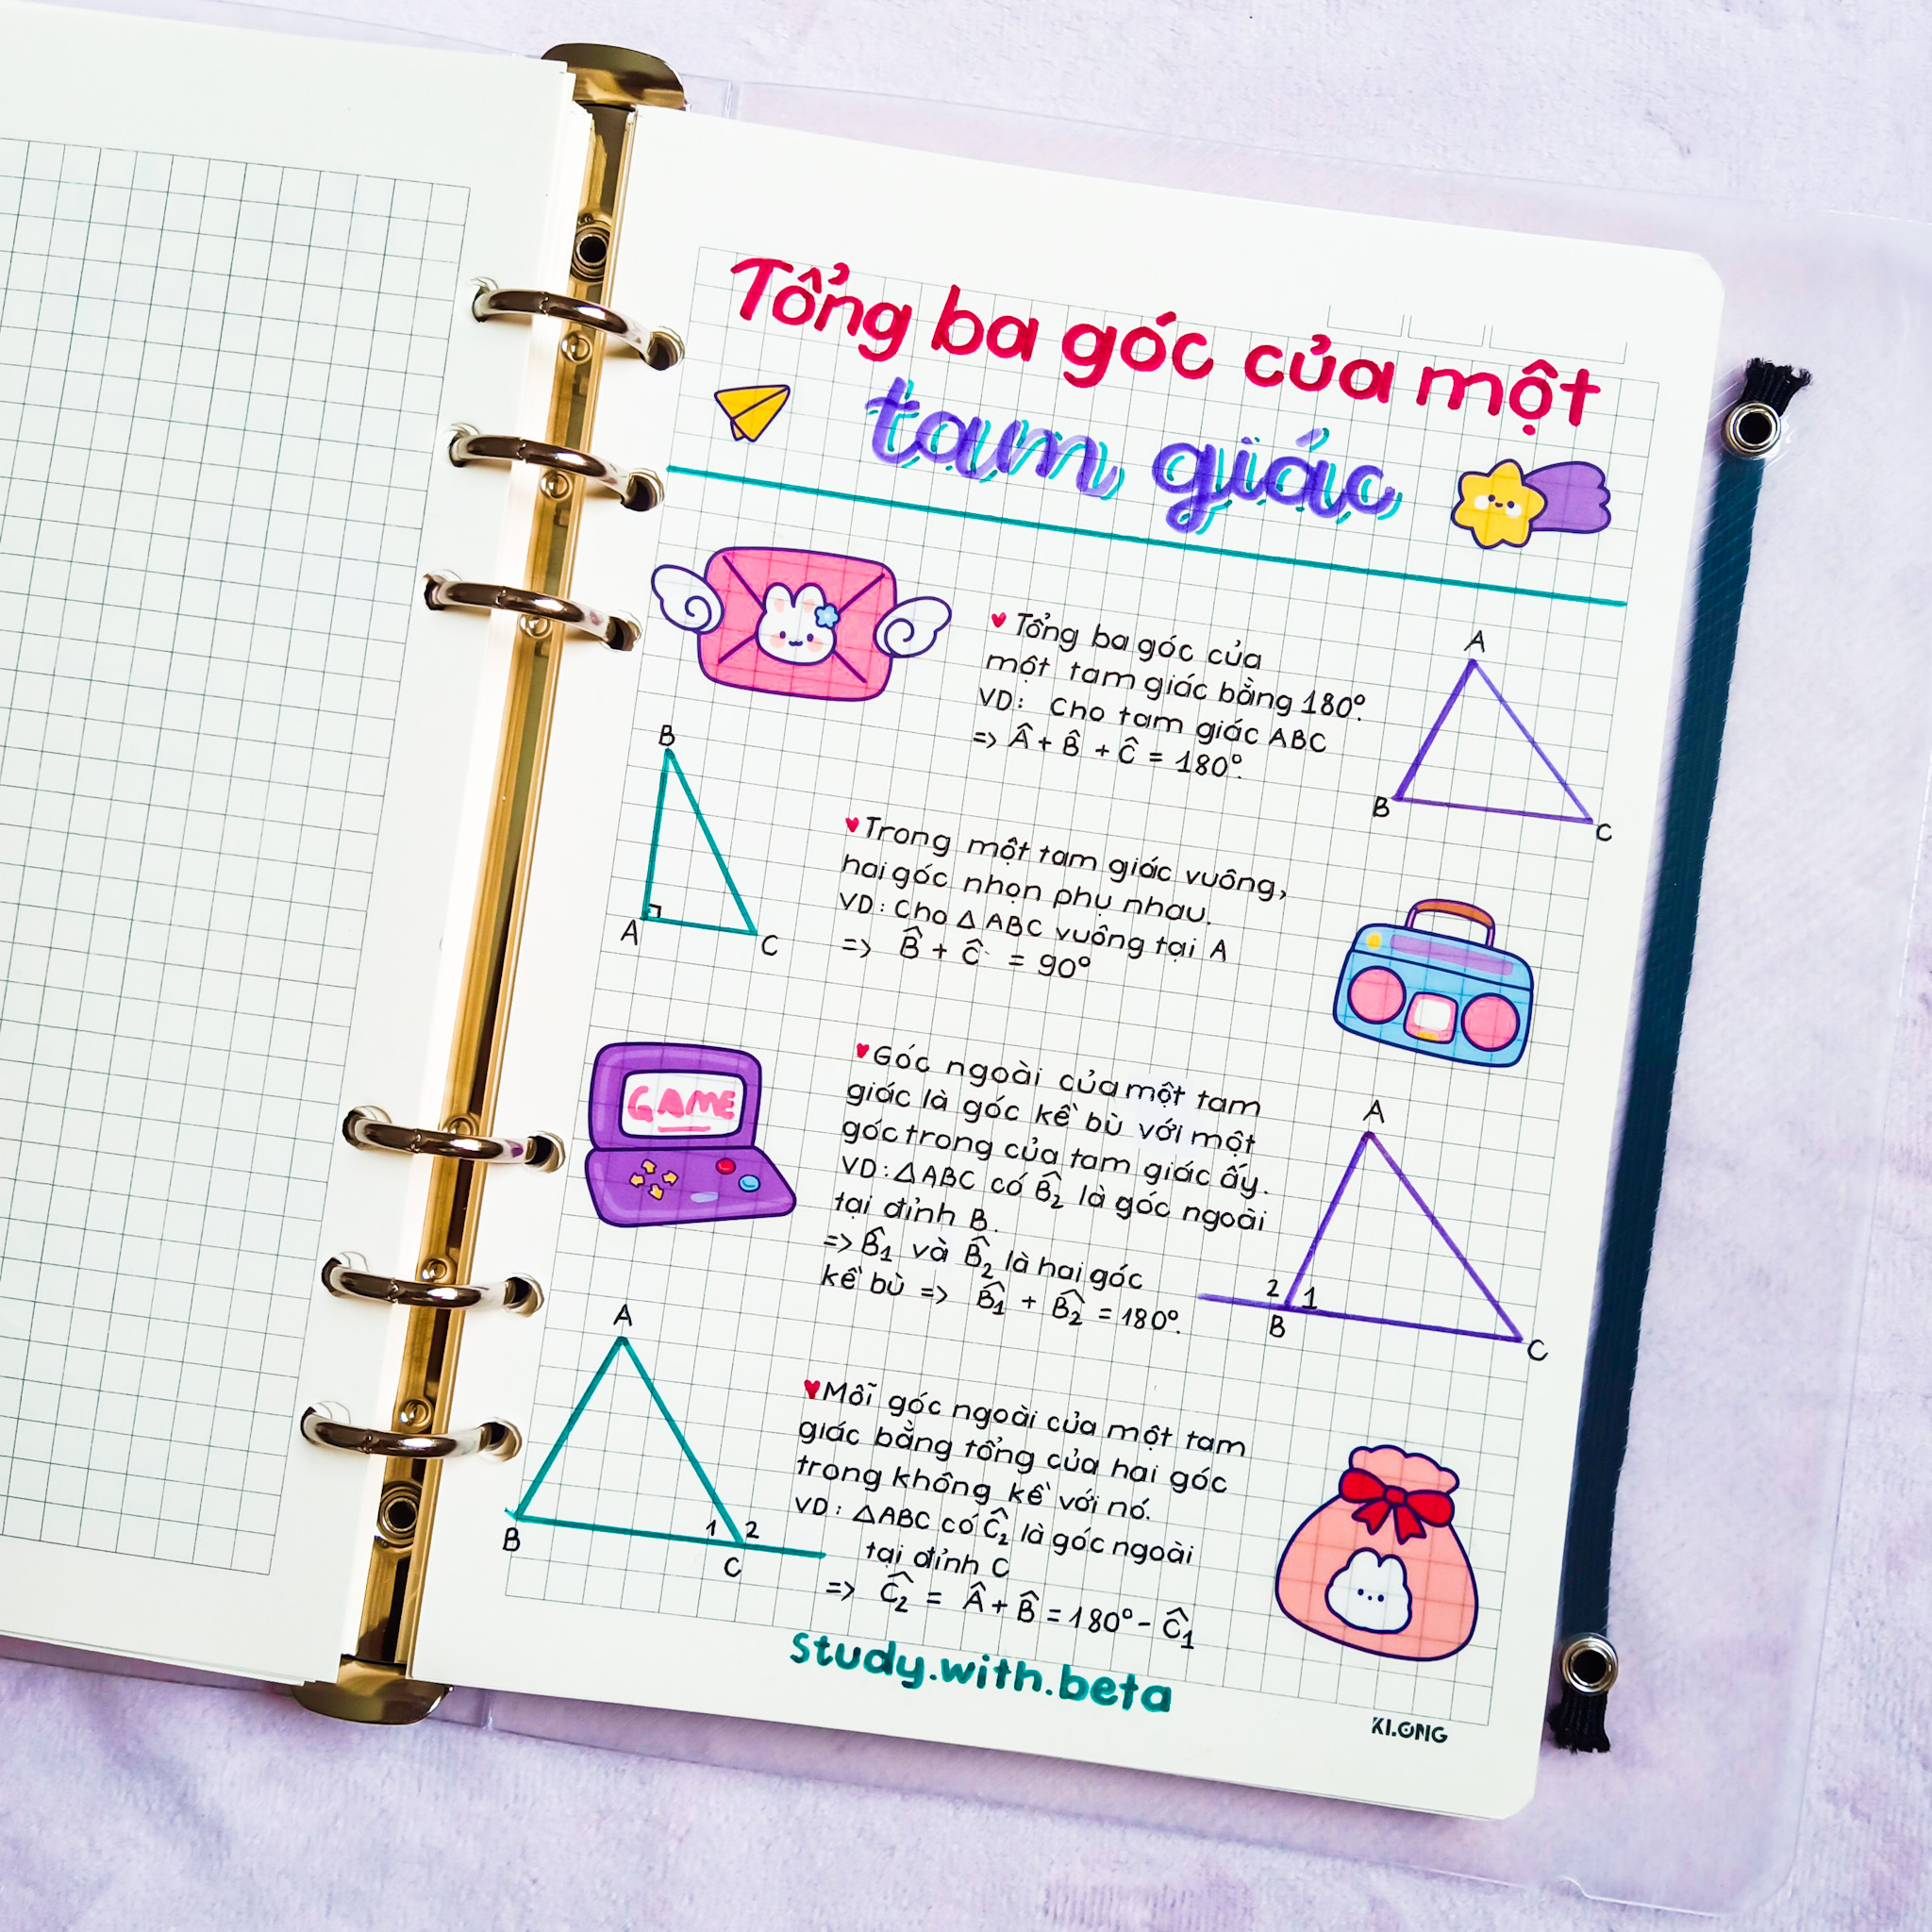 Tổng ba góc của một
tam giác
♥ Tổng ba góc của
một tam giác bằng 180°.
VD: Cho tam giác ABC
=> Â + B̂ + Ĉ = 180°.
A
B
C
B
A
C
♥ Trong một tam giác vuông,
hai góc nhọn phụ nhau.
VD: Cho △ ABC vuông tại A
=> B̂ + Ĉ = 90°
GAME
♥ Góc ngoài của một tam
giác là góc kề bù với một
góc trong của tam giác ấy.
VD: △ABC có B̂₂ là góc ngoài
tại đỉnh B.
=> B̂₁ và B̂₂ là hai góc
kề bù => B̂₁ + B̂₂ = 180°.
A
2 1
B
C
A
B
1 2
C
♥ Mỗi góc ngoài của một tam
giác bằng tổng của hai góc
trong không kề với nó.
VD: △ABC có Ĉ₂ là góc ngoài
tại đỉnh C
=> Ĉ₂ = Â + B̂ = 180° - Ĉ₁
study.with.beta
KLONG